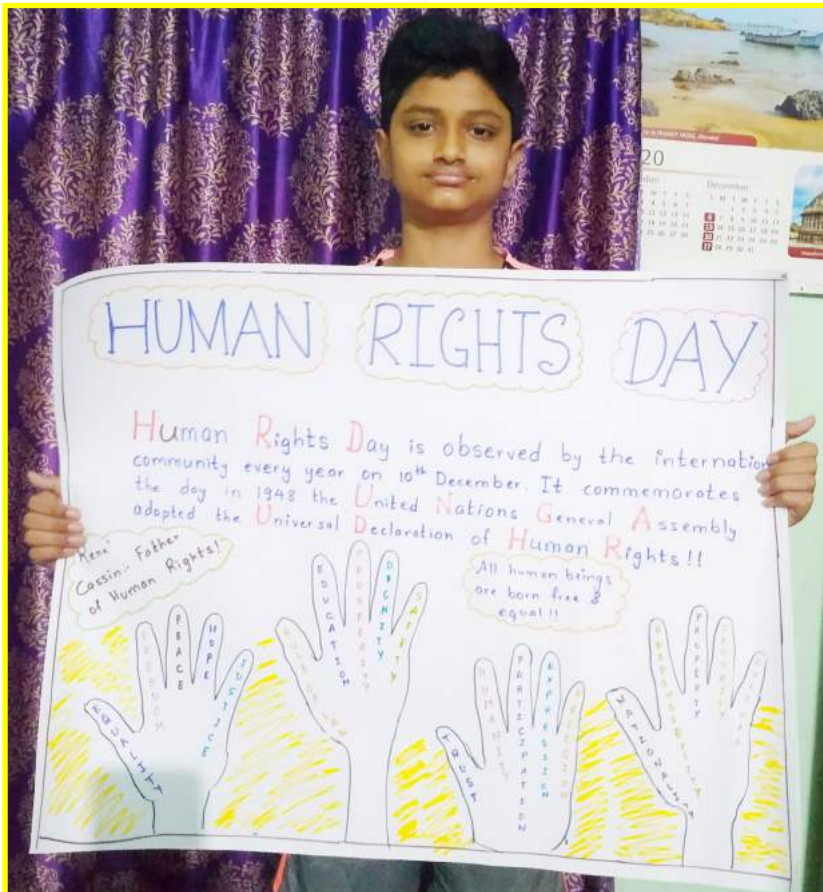 20
December
S M T W T F S
HUMAN RIGHTS DAY
Human Rights Day is observed by the internation
community every year on 10th December. It commemorates
the day in 1948 the United Nations General Assembly
adopted the Universal Declaration of Human Rights!!
Rene
Cassin:- Father
of Human Rights!
All human beings
are born free &
equal !!
EQUALITY
FREEDOM
PEACE
HOPE
JUSTICE
EDUCATION
PROSTERITY
DIGNITY
SAFETY
TRUST
HUMANITY
PARTICIPATION
EXPRESSION
NATIONALITY
RESPONSIBILITY
PROPERTY